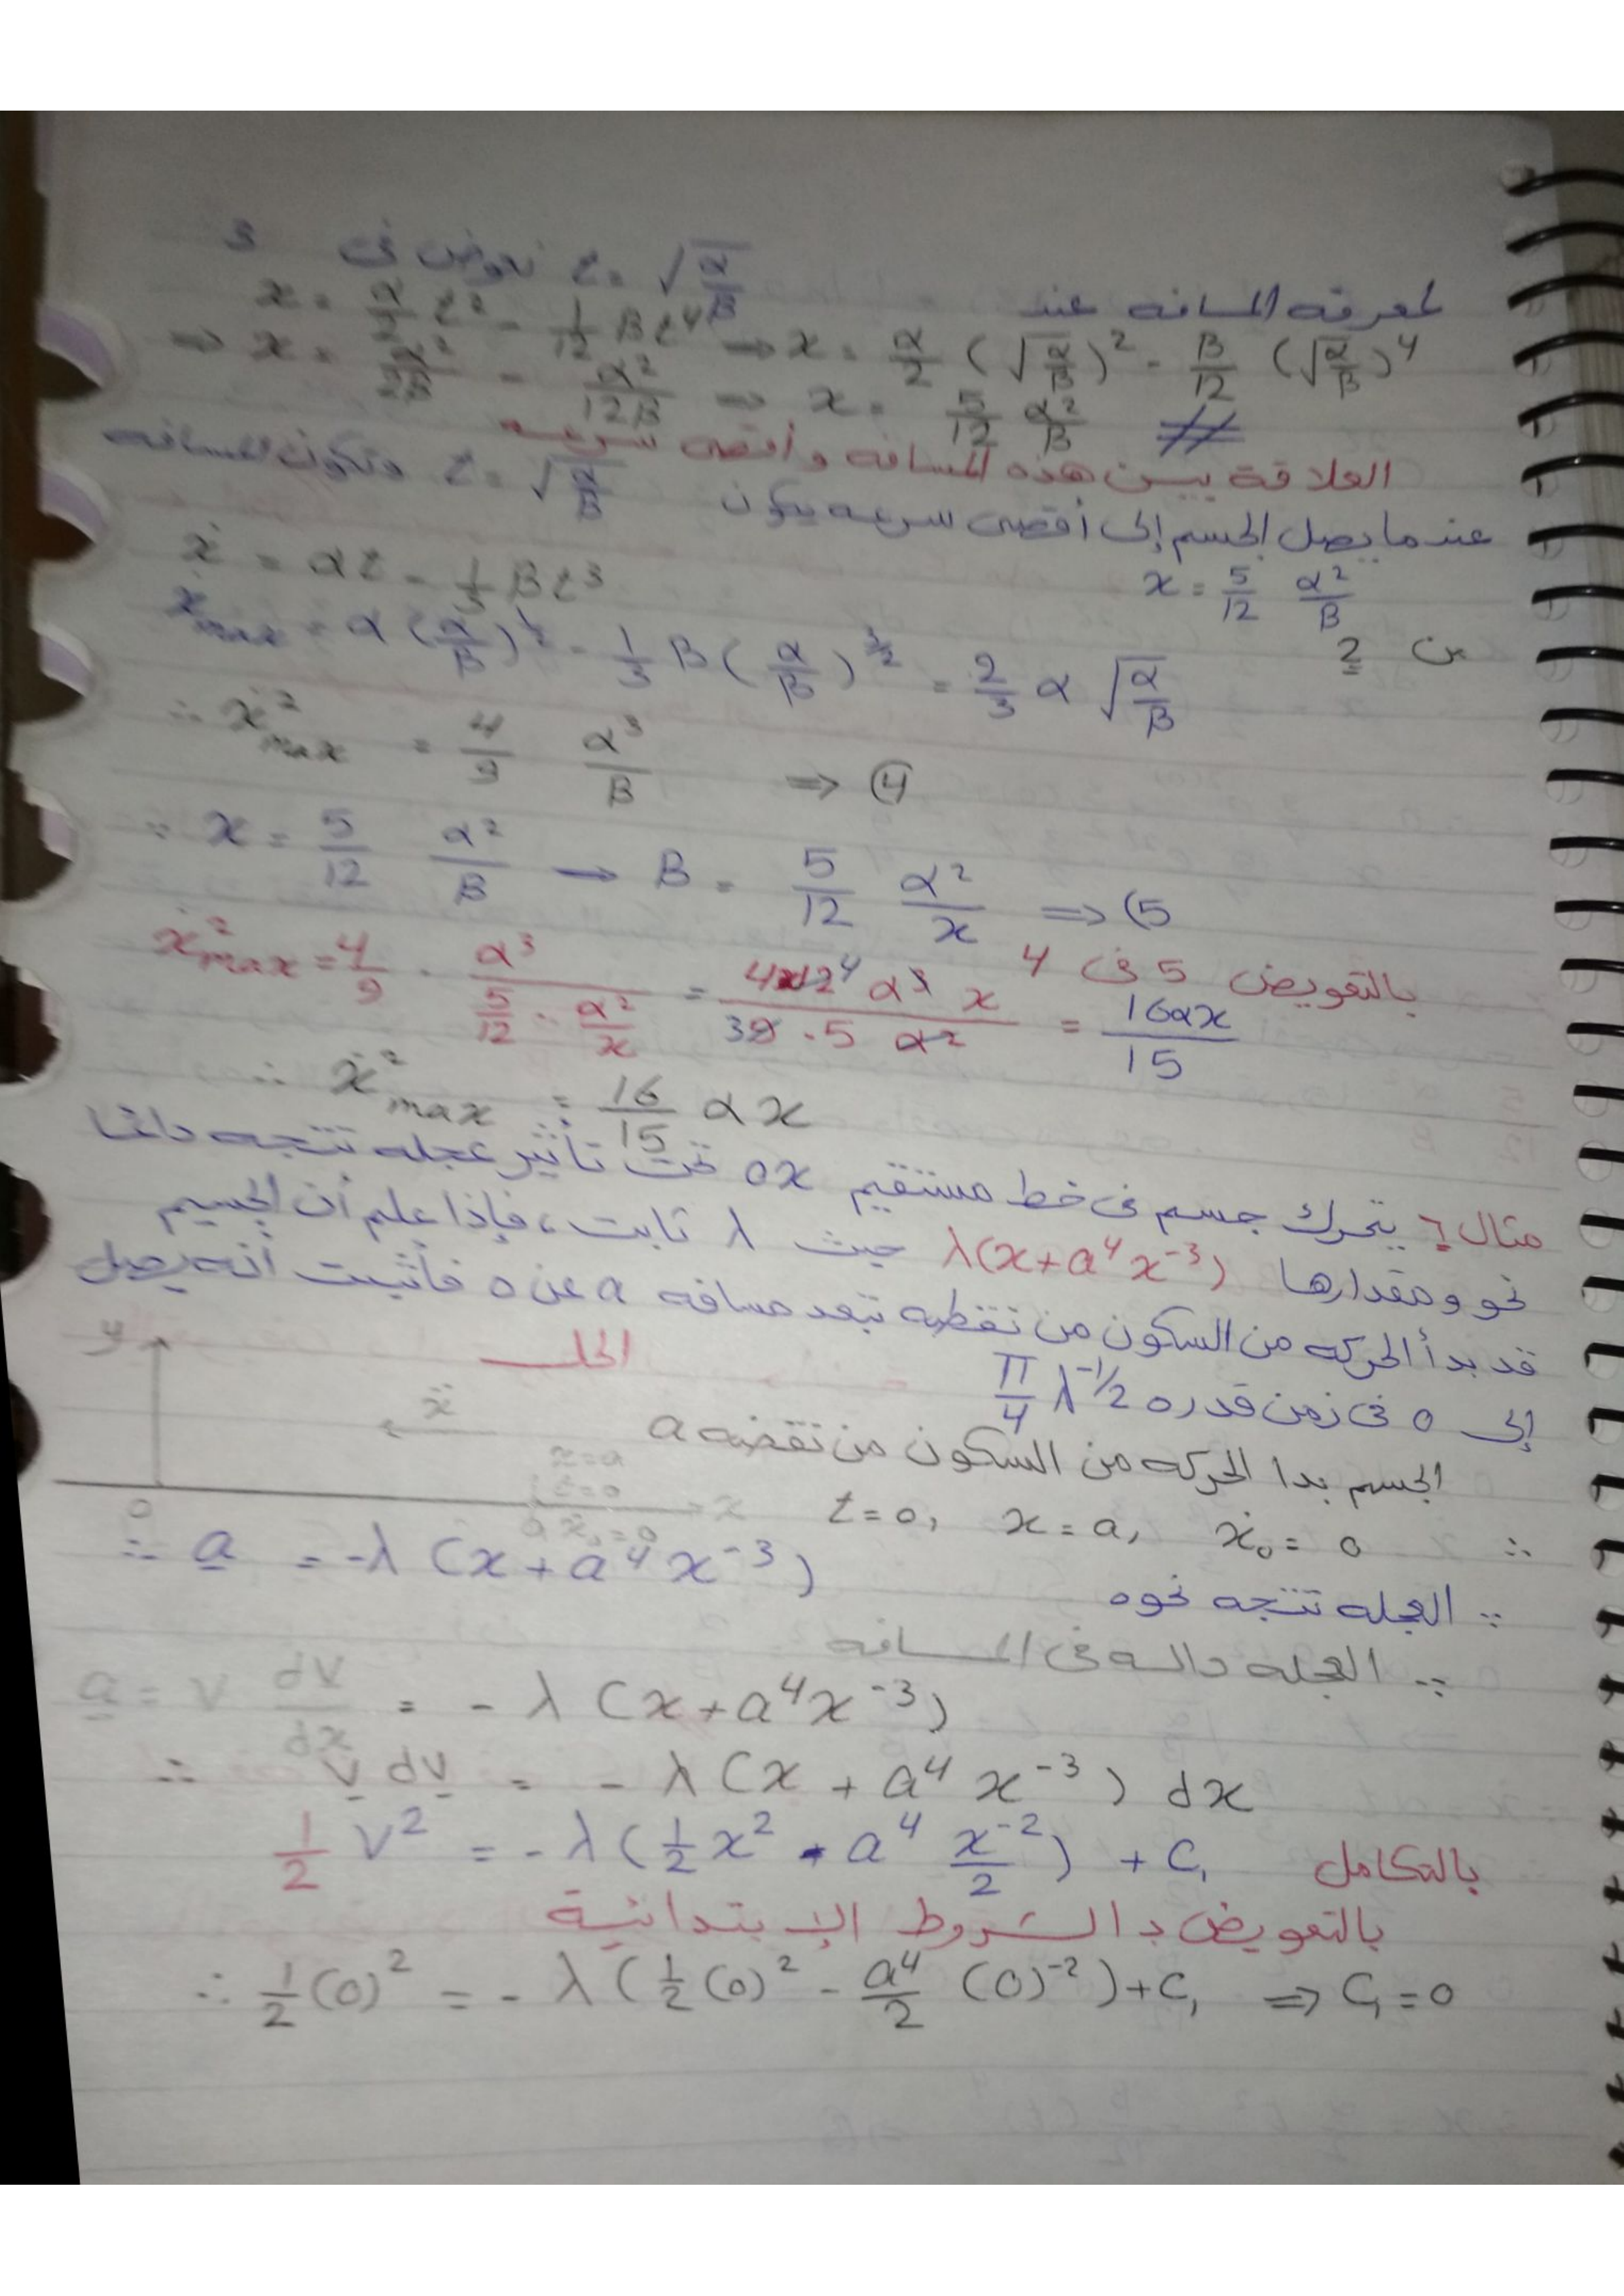 لمعرفه المسافه عند t = √(α/β) نعوض فى 3
x = α/2 t² - 1/12 β t⁴ ⇒ x = α/2 (√(α/β))² - β/12 (√(α/β))⁴
⇒ x = α²/2β - α²/12β ⇒ x = 5/12 α²/β #
العلاقة بين هذه المسافه وأقصى سرعه
عندما يصل الجسم إلى أقصى سرعه يكون t = √(α/β) وتكون المسافه
x = 5/12 α²/β
من 2 ẋ = αt - 1/3 βt³
ẋmax = α(α/β)^½ - 1/3 β(α/β)^3/2 = 2/3 α √(α/β)
∴ ẋ²max = 4/9 α³/β ⇒ (4)
∵ x = 5/12 α²/β → β = 5/12 α²/x ⇒ (5
بالتعويض 5 فى 4
ẋ²max = 4/9 · α³/(5/12 · α²/x) = 4x12 4 α³ x / 39 · 5 α² = 16αx/15
∴ ẋ²max = 16/15 αx
مثال 6 يتحرك جسم فى خط مستقيم ox تحت تأثير عجله تتجه دائما
نحو o مقدارها λ(x+a⁴x⁻³) حيث λ ثابت، فإذا علم أن الجسيم
قد بدأ الحركه من السكون من نقطه تبعد مسافه a عن o فأثبت أنه يصل
إلى o فى زمن قدره π/4 λ^-1/2
الحل
y
ẍ
x=a
t=0
ẋ₀=0
o a x
الجسم بدا الحركه من السكون من نقطه a
∴ t=0, x=a, ẋ₀=0
∵ العجله تتجه نحو o ∴ a = -λ (x+a⁴x⁻³)
∵ العجله داله فى المسافه
a = v dv/dx = -λ (x+a⁴x⁻³)
∴ v dv = -λ (x + a⁴ x⁻³) dx
بالتكامل ½ v² = -λ (½x² - a⁴ x⁻²/2) + C₁
بالتعويض بالشروط الإبتدائية
∴ ½(0)² = -λ (½(0)² - a⁴/2 (0)⁻²) + C₁ ⇒ C₁=0